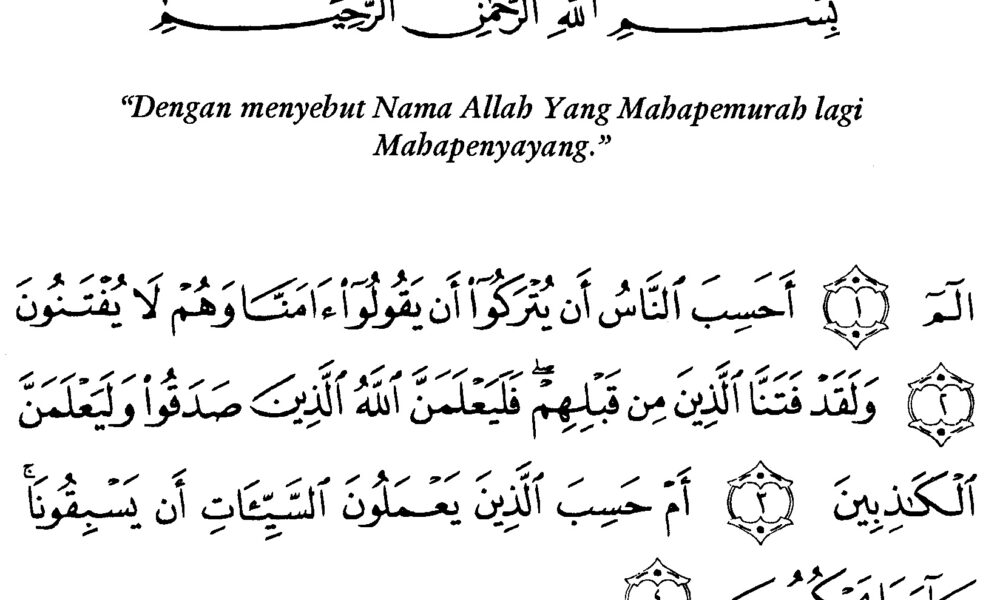 بِسْمِ اللَّهِ الرَّحْمَٰنِ الرَّحِيمِ
“Dengan menyebut Nama Allah Yang Mahapemurah lagi
Mahapenyayang.”
الٓمٓ ١ أَحَسِبَ ٱلنَّاسُ أَن يُتْرَكُوٓا۟ أَن يَقُولُوٓا۟ ءَامَنَّا وَهُمْ لَا يُفْتَنُونَ
٢ وَلَقَدْ فَتَنَّا ٱلَّذِينَ مِن قَبْلِهِمْ ۖ فَلَيَعْلَمَنَّ ٱللَّهُ ٱلَّذِينَ صَدَقُوا۟ وَلَيَعْلَمَنَّ
ٱلْكَـٰذِبِينَ ٣ أَمْ حَسِبَ ٱلَّذِينَ يَعْمَلُونَ ٱلسَّيِّـَٔاتِ أَن يَسْبِقُونَا ۚ
٤